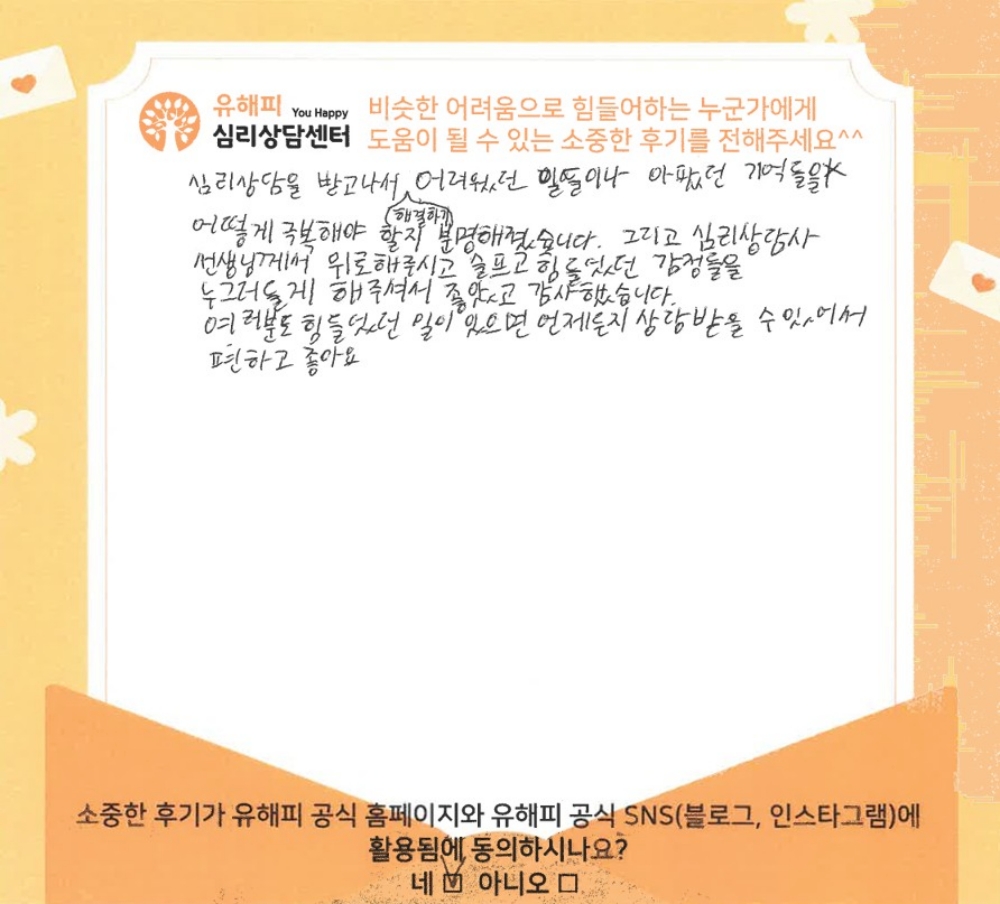 유해피 You Happy
심리상담센터
비슷한 어려움으로 힘들어하는 누군가에게
도움이 될 수 있는 소중한 후기를 전해주세요^^
심리상담을 받고나서 어려웠던 일들이나 아팠던 기억들을
해결하기
어떻게 극복해야 할지 분명해졌습니다. 그리고 심리상담사
선생님께서 위로해주시고 슬프고 힘들었던 감정들을
누그러들게 해주셔서 좋았고 감사했습니다.
여러분도 힘들었던 일이 있으면 언제든지 상담받을 수 있어서
편하고 좋아요
소중한 후기가 유해피 공식 홈페이지와 유해피 공식 SNS(블로그, 인스타그램)에
활용됨에 동의하시나요?
네 ☑ 아니오 □